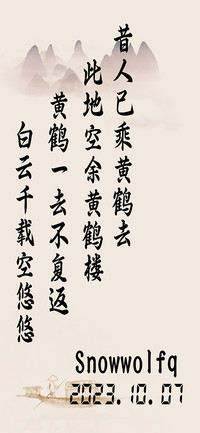 昔人已乘黄鹤去
此地空余黄鹤楼
黄鹤一去不复返
白云千载空悠悠
Snowwolfq
2023.10.07